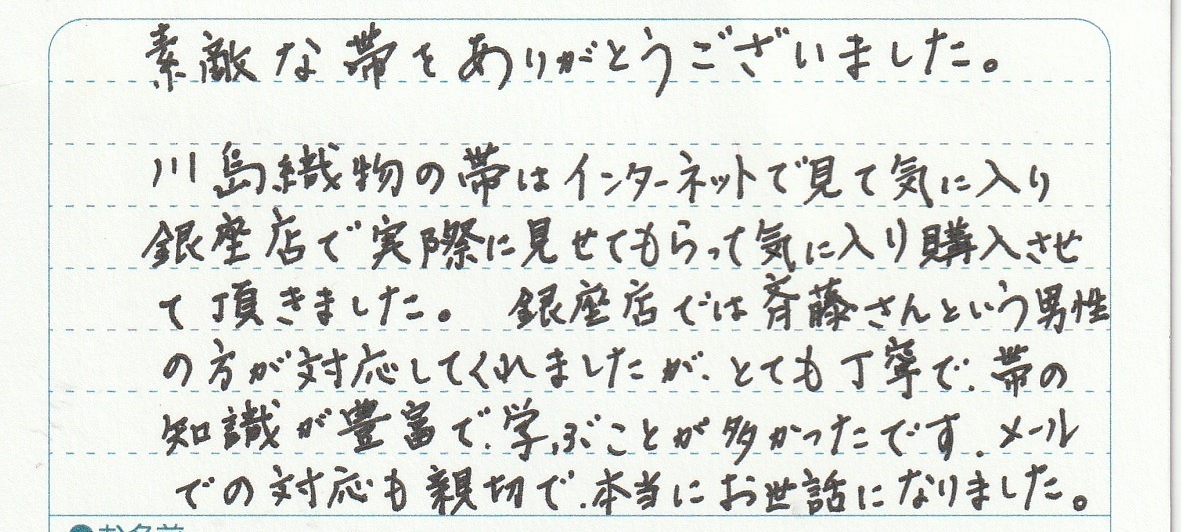 素敵な帯をありがとうございました。
川島織物の帯はインターネットで見て気に入り
銀座店で実際に見せてもらって気に入り購入させ
て頂きました。 銀座店では斉藤さんという男性
の方が対応してくれましたが、とても丁寧で、帯の
知識が豊富で、学ぶことが多かったです。メール
での対応も親切で、本当にお世話になりました。